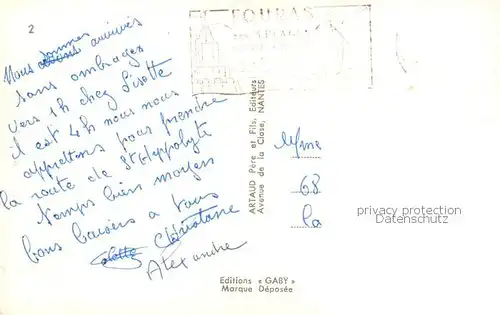 2
Nous sommes arrivés
sans ombrages
vers 1h chez Lisette
il est 4h nous nous
apprêtons pour prendre
la route de St Hippolyte
Temps bien moyen
bons baisers a vous
Colette Christiane
Alexandre
FOURAS
SES PLAGES
ARTAUD Père et Fils, Éditeurs
Avenue de la Close, NANTES
Mme
68
la
privacy protection
Datenschutz
Editions « GABY »
Marque Déposée